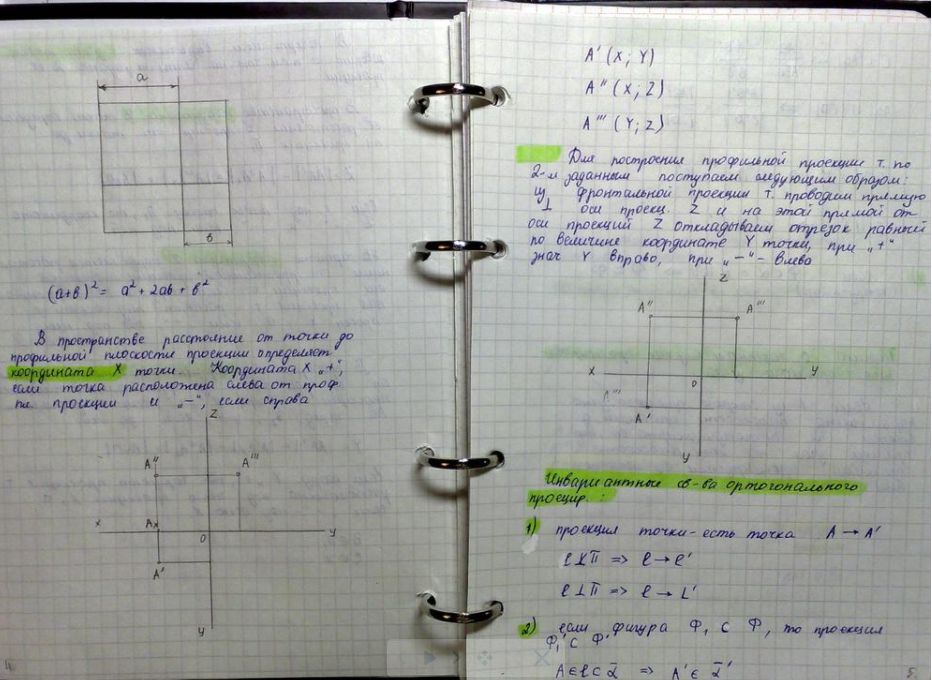 a
в
(a+в)² = a² + 2ав + в²
В пространстве расстояние от точки до
профильной плоскости проекции определяет
координата X точки. Координата X „+",
если точка расположена слева от проф.
пл проекции и „-", если справа
Z
A" A'''
x Aₓ 0 y
A'
y
4.
A' (X; Y)
A" (X; Z)
A''' (Y; Z)
Для построения профильной проекции т. по
2-м заданным поступаем следующим образом:
из фронтальной проекции т. проводим прямую
⊥ оси проекц. Z и на этой прямой от
оси проекций Z откладываем отрезок равный
по величине координате Y точки, при „+"
знач Y вправо, при „-" - влево
Z
A" A'''
x 0 y
A'''
A'
y
Инвариантные св-ва ортогонального
проецир.:
1) проекция точки - есть точка A → A'
ℓ ⊥̸ П => ℓ → ℓ'
ℓ ⊥ П => ℓ → L'
2) если фигура Ф₁ ⊂ Ф, то проекция
Ф₁' ⊂ Ф'
A ∈ ℓ ⊂ => A' ∈
5.